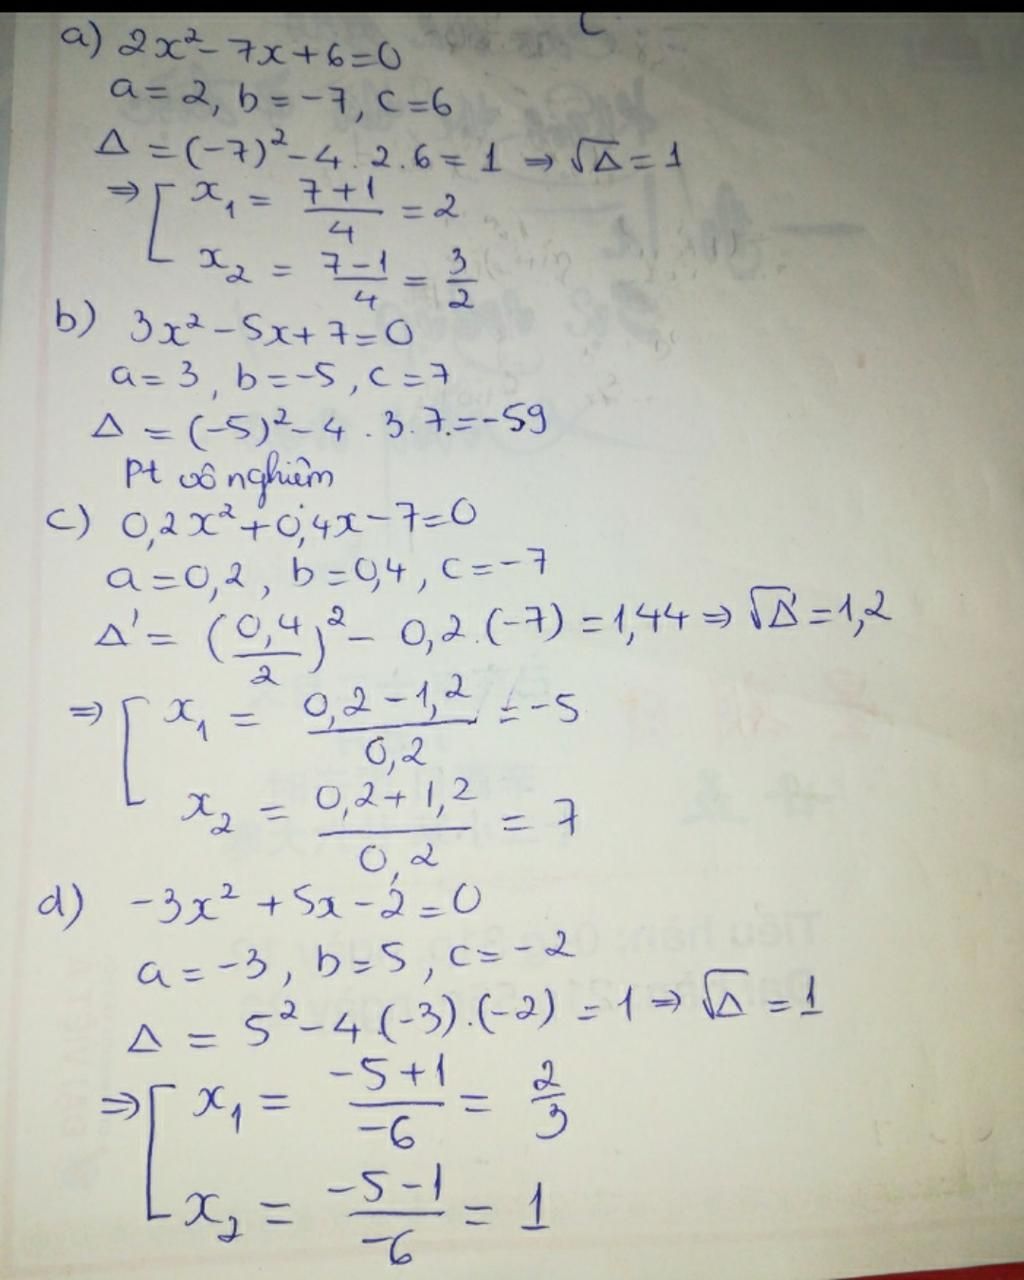 a) 2x² - 7x + 6 = 0
a = 2, b = -7, c = 6
Δ = (-7)² - 4 . 2 . 6 = 1 ⇒ √Δ = 1
⇒ [ x₁ = (7+1)/4 = 2
x₂ = (7-1)/4 = 3/2
b) 3x² - 5x + 7 = 0
a = 3, b = -5, c = 7
Δ = (-5)² - 4 . 3 . 7 = -59
Pt vô nghiệm
c) 0,2x² + 0,4x - 7 = 0
a = 0,2, b = 0,4, c = -7
Δ' = (0,4/2)² - 0,2 . (-7) = 1,44 ⇒ √Δ' = 1,2
⇒ [ x₁ = (0,2 - 1,2)/0,2 = -5
x₂ = (0,2 + 1,2)/0,2 = 7
d) -3x² + 5x - 2 = 0
a = -3, b = 5, c = -2
Δ = 5² - 4.(-3).(-2) = 1 ⇒ √Δ = 1
⇒ [ x₁ = (-5+1)/-6 = 2/3
x₂ = (-5-1)/-6 = 1